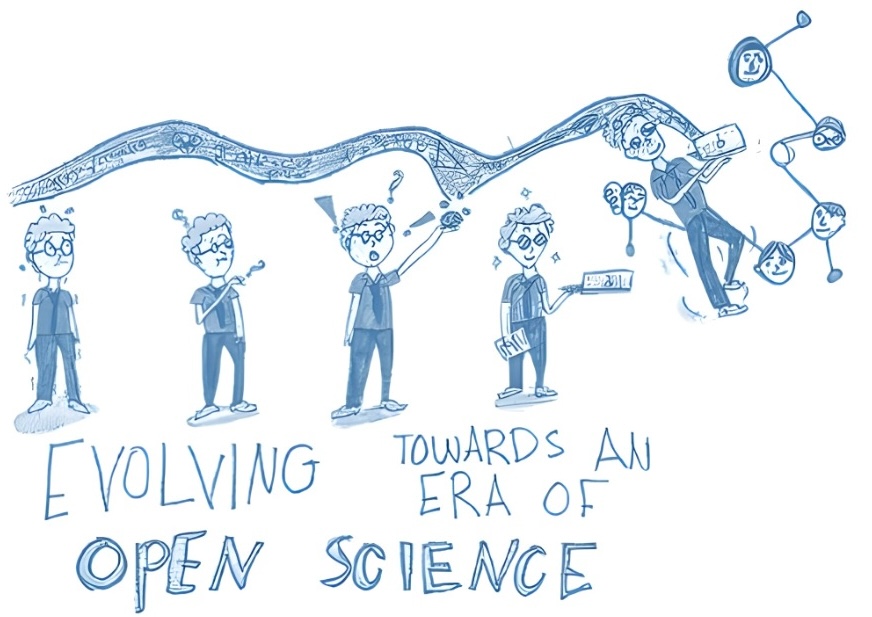 EVOLVING
TOWARDS AN
ERA OF
OPEN SCIENCE